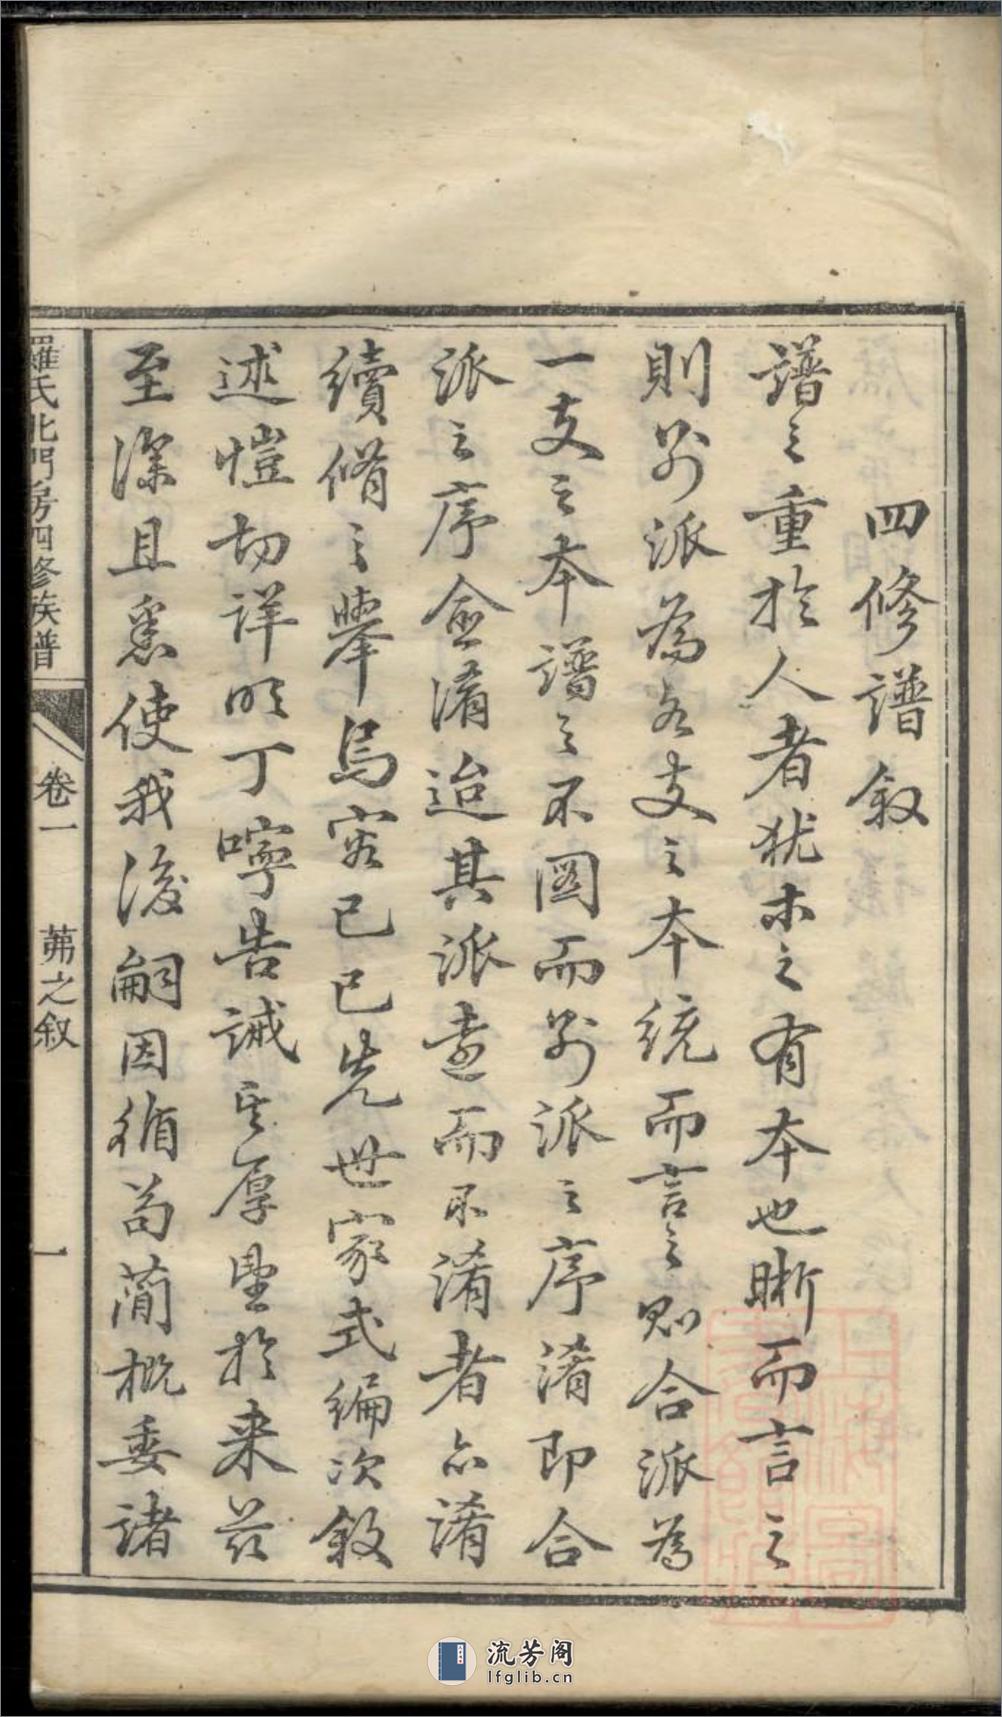 四修譜叙
譜之重於人者猶木之有本也晰而言之
則別派為各支之本統而言之則合派為
一支之本譜之不圖而別派之序淆即合
派之序僉淆迨其派遠而不淆者亦淆
續脩之舉烏容已已先世家式編次敘
述愷切詳明丁嚀告誡其厚望於来茲
至深且悉使我後嗣因循苟蕳概委諸
羅氏北門房四修族譜
卷一
茀之叙
一
流芳阁
lfglib.cn